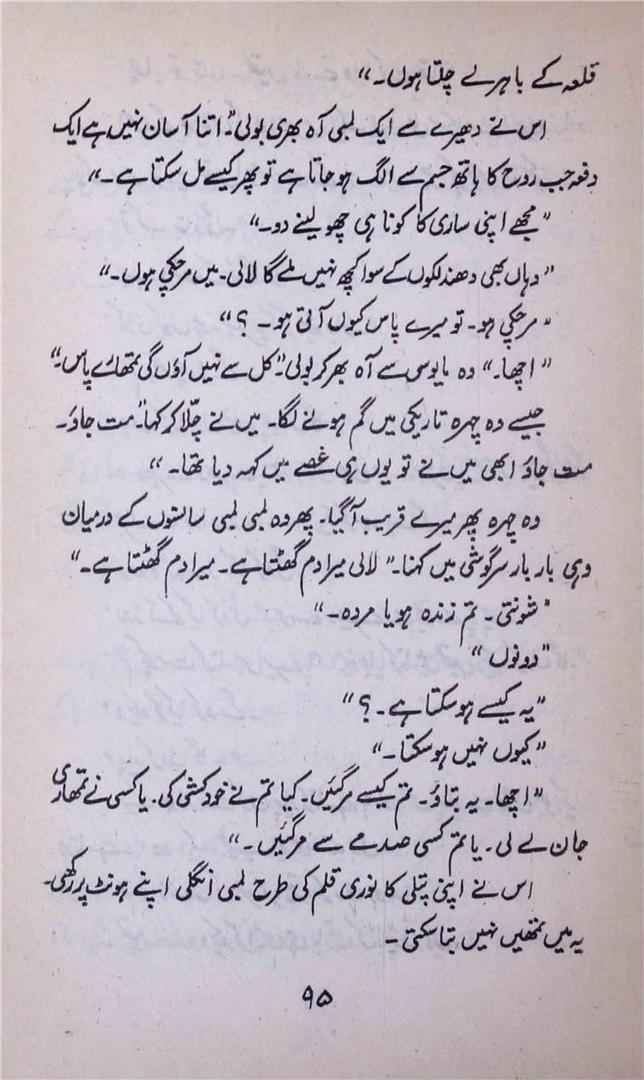 قلعہ کے باہر لے چلتا ہوں۔"
اس نے دھیرے سے ایک لمبی آہ بھری بولی"۔ اتنا آسان نہیں ہے ایک
دفعہ جب روح کا ہاتھ جسم سے الگ ہو جاتا ہے تو پھر کیسے مل سکتا ہے۔"
"مجھے اپنی ساری کا کونا ہی چھو لینے دو۔"
"وہاں بھی دھندلکوں کے سوا کچھ نہیں ملے گا لالی۔ میں مر چکی ہوں۔"
"مر چکی ہو۔ تو میرے پاس کیوں آتی ہو۔ ؟"
"اچھا۔" وہ مایوس سے آہ بھر کر بولی"۔ کل سے نہیں آؤں گی تمھارے پاس۔"
جیسے وہ چہرہ تاریکی میں گم ہونے لگا۔ میں نے چلّا کر کہا"۔ مت جاؤ۔
مت جاؤ ابھی میں نے تو یوں ہی غصے میں کہہ دیا تھا۔ "
وہ چہرہ پھر میرے قریب آ گیا۔ پھر وہ لمبی لمبی سانسوں کے درمیان
وہی بار بار سرگوشی میں کہنا۔" لالی میرا دم گھٹتا ہے۔ میرا دم گھٹتا ہے۔"
"شونتی۔ تم زندہ ہو یا مردہ۔"
"دونوں"
"یہ کیسے ہو سکتا ہے۔ ؟"
"کیوں نہیں ہو سکتا۔"
"اچھا۔ یہ بتاؤ۔ تم کیسے مر گئیں۔ کیا تم نے خودکشی کی۔ یا کسی نے تمھاری
جان لے لی۔ یا تم کسی صدمے سے مر گئیں۔"
اس نے اپنی پتلی کا نوری قلم کی طرح لمبی انگلی اپنے ہونٹ پر رکھی۔
یہ میں تمھیں نہیں بتا سکتی۔
۹۵